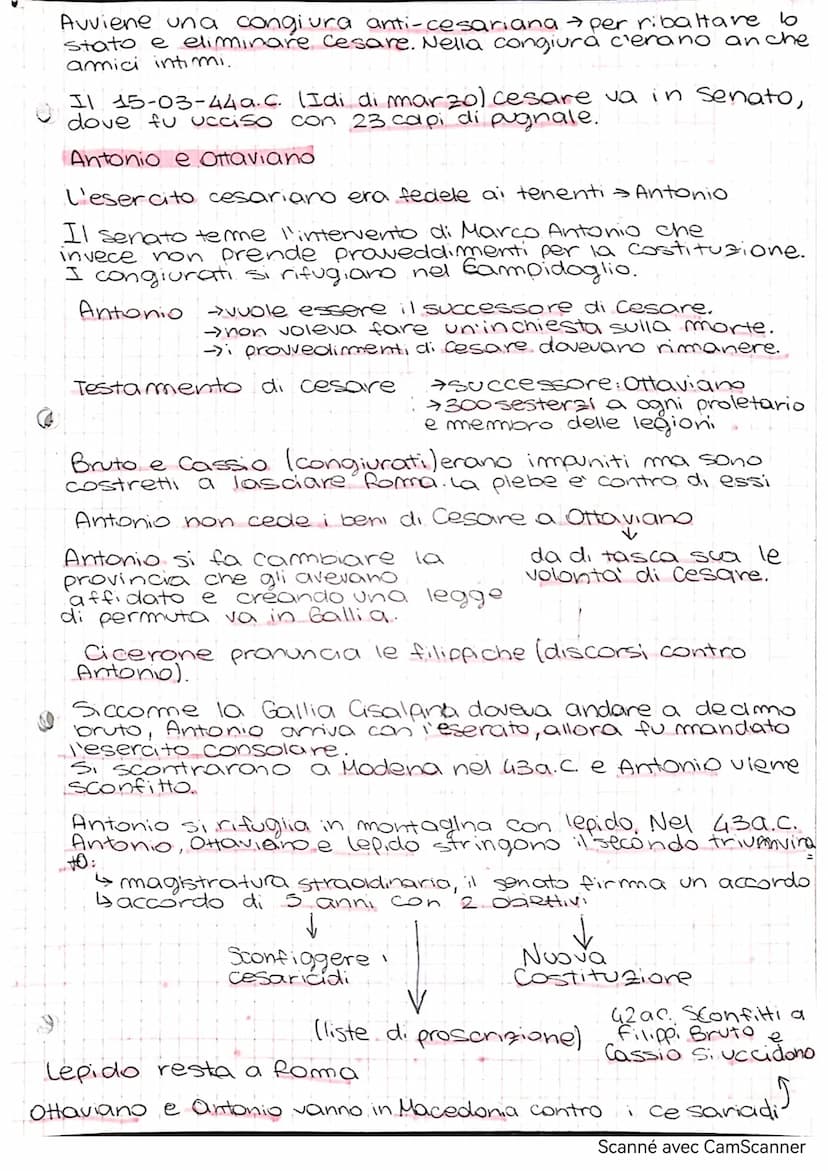 Avviene una congiura anti-cesariana → per ribaltare lo
stato e eliminare Cesare. Nella congiura c'erano anche
amici intimi.
Il 15-03-44a.C. (Idi di marzo) Cesare va in Senato,
dove fu ucciso con 23 colpi di pugnale.
Antonio e Ottaviano
L'esercito cesariano era fedele ai tenenti → Antonio
Il senato teme l'intervento di Marco Antonio che
invece non prende provveddimenti per la Costituzione.
I congiurati si rifugiano nel Campidoglio.
Antonio → vuole essere il successore di Cesare.
→ non voleva fare un'inchiesta sulla morte.
→ i provvedimenti di Cesare dovevano rimanere.
Testamento di Cesare → successore: Ottaviano
→ 300 sesterzi a ogni proletario
e membro delle legioni.
Bruto e Cassio (congiurati) erano impuniti ma sono
costretti a lasciare Roma. La plebe è contro di essi
Antonio non cede i beni di Cesare a Ottaviano
↓
Antonio si fa cambiare la
provincia che gli avevano
affidato e creando una legge
di permuta va in Gallia.
da di tasca sua le
volontà di Cesare.
Cicerone pronuncia le filippiche (discorsi contro
Antonio).
Siccome la Gallia Cisalpina doveva andare a decimo
bruto, Antonio arriva con l'esercito, allora fu mandato
l'esercito consolare.
Si scontrarono a Modena nel 43a.C. e Antonio viene
sconfitto.
Antonio si rifuglia in montagna con lepido. Nel 43a.C.
Antonio, Ottaviano e Lepido stringono il secondo triumvira
to:
↳ magistratura straordinaria, il senato firma un accordo
↳ accordo di 5 anni con 2 obiettivi
↓ ↓ ↓
Sconfiggere i
cesaricidi
Nuova
Costituzione
(liste di proscrizione)
42a.C. Sconfitti a
Filippi Bruto e
Cassio si uccidono
Lepido resta a Roma
Ottaviano e Antonio vanno in Macedonia contro i cesariadi
Scanné avec CamScanner